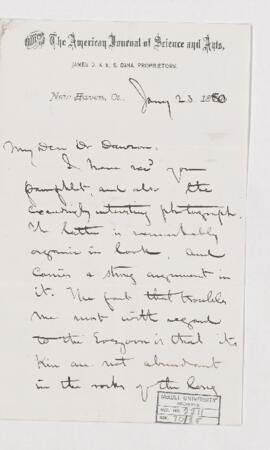 The American Journal of Science and Arts,
JAMES D. & E. S. DANA, PROPRIETORS.
New Haven, Ct., Jany 23 1880
My Dear Dr Dawson.
I have recd your
pamphlet, and also the
exceedingly interesting photograph.
The latter is remarkably
organic in look, and
carries a strong argument in
it. The fact that troubles
me most with regard
to the Eozoon is that its
kin are not abundant
in the rocks of the long
McGILL UNIVERSITY
ARCHIVES
ACC. NO.
REF.